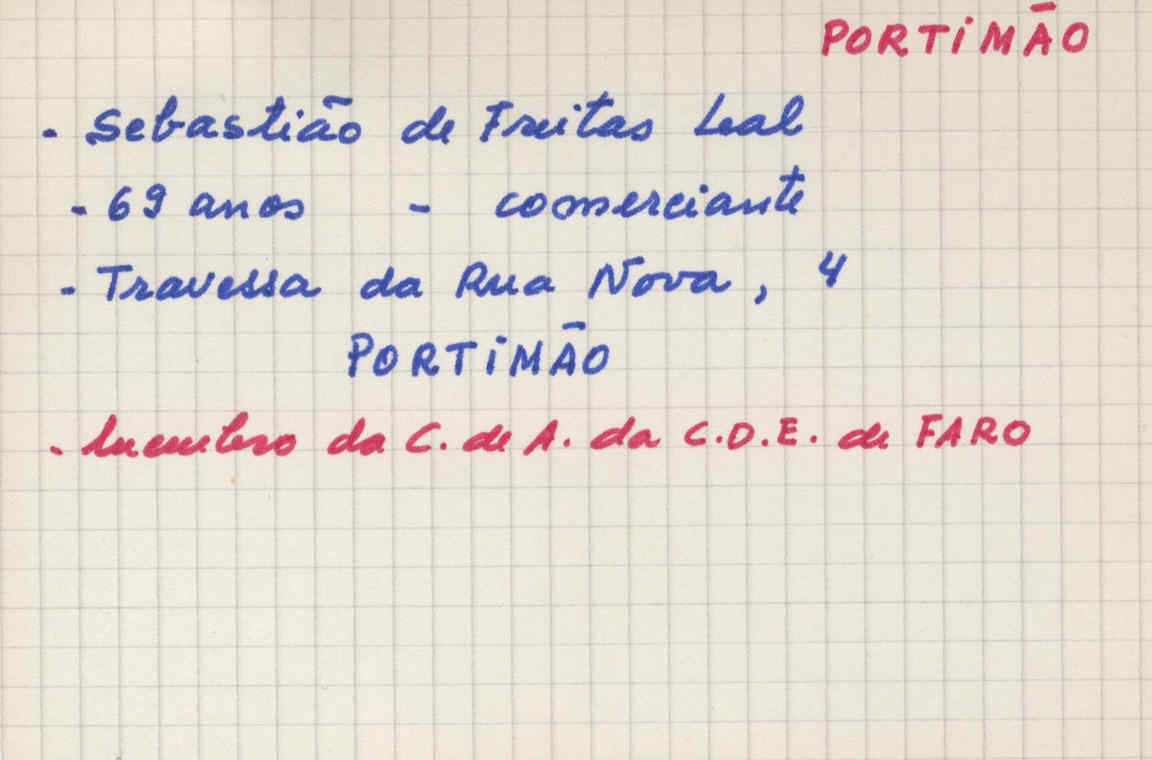 PORTIMÃO
- Sebastião de Freitas Leal
- 69 anos - comerciante
- Travessa da Rua Nova, 4
PORTIMÃO
- Membro da C. de A. da C.D.E. de FARO